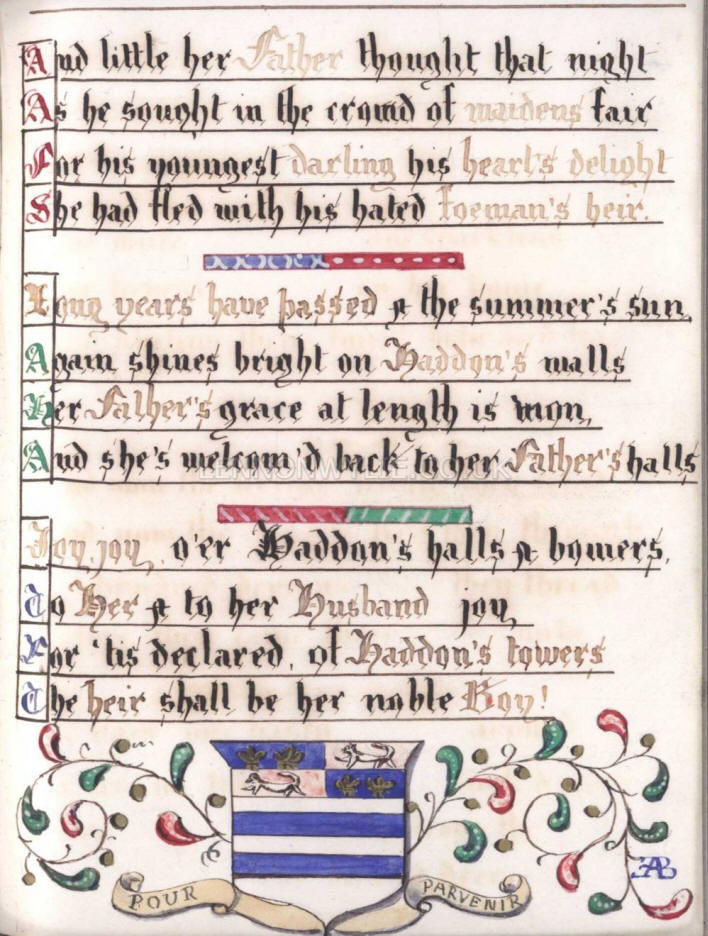 And little her Father thought that night
As he sought in the crowd of maidens fair
For his youngest darling his heart's delight
She had fled with his hated foeman's heir.
Long years have passed & the summer's sun,
Again shines bright on Haddon's walls
Her Father's grace at length is won,
And she's welcom'd back to her Father's halls
LENNONWYLIE.CO.UK
Joy, joy, o'er Haddon's halls & bowers,
To Her & to her Husband joy,
For 'tis declared, of Haddon's towers
The heir shall be her noble Boy!
POUR PARVENIR